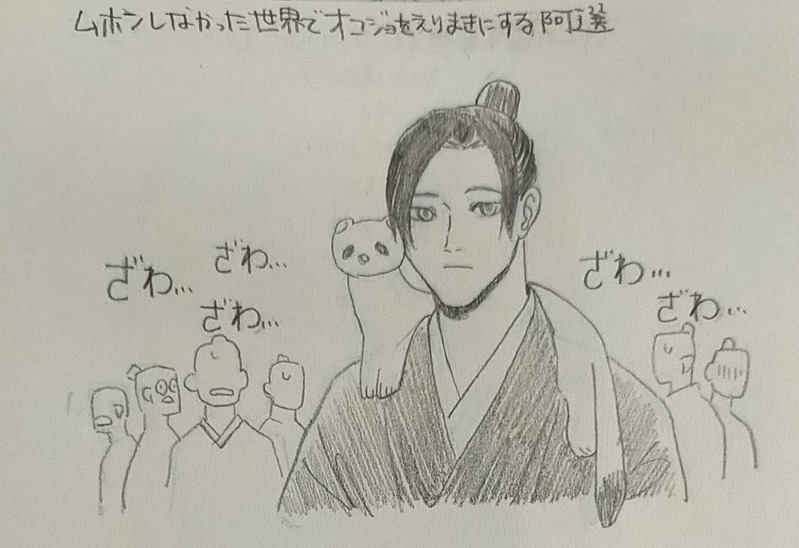 ムホンしなかった世界でオコジョをえりまきにする阿選
ざわ…
ざわ…
ざわ…
ざわ…
ざわ…